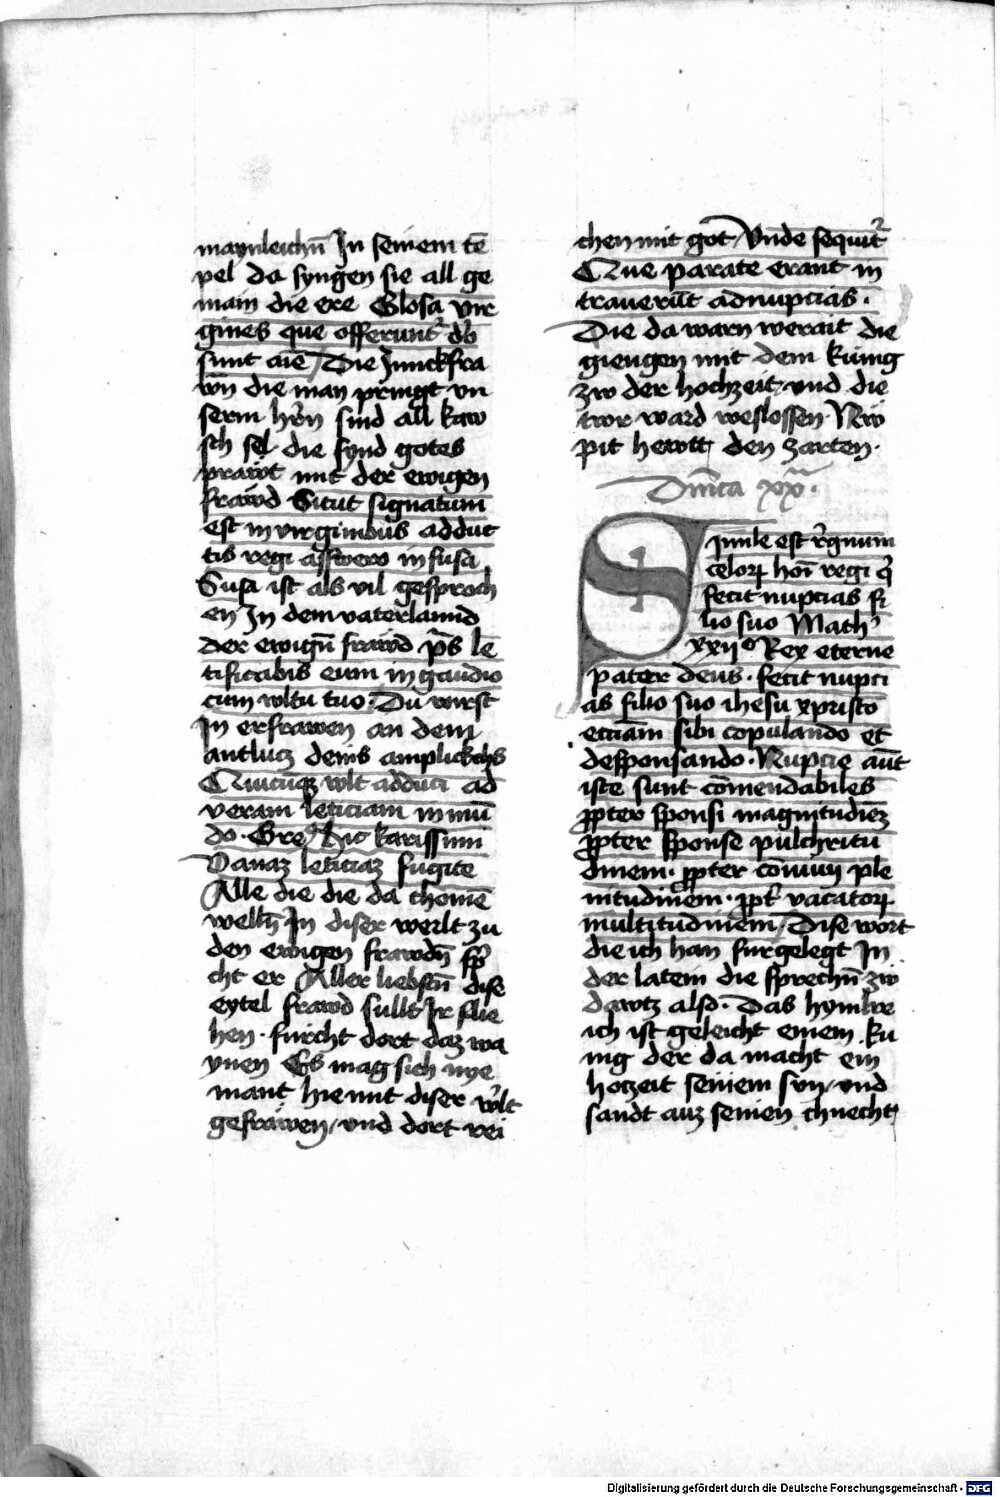 maynleichn̄ Jn seinem tē
pel da syngen sie all ge
main die ere Glosa vir
gines que offerunt͛ dō
sunt aīe / Die Junckfra
wn̄ die man pringt vn
serm hr̄n sind all kaw
sch sel die synd gotes
prawt mit der ewigen
frawd Sicut signatum
est in virginibus adduc
tis regi asswero in susa
Susa ist als vil gesproch
en Jn dem vaterlannd
der ewign̄ frawd p̄s le
tificabis eum in gaudio
cum vultu tuo · Du wirst
Jn erfrawen an dem
antlucz deins anplickchs
Quicūqꝫ vult adduci ad
veram leticiam in mū
do · Gre⁹ hic karissimi
Vanaz leticiaz fugite
Alle die die da chomē
welln̄ Jn diser werlt zu
den ewigen frawdn̄ sp̄
cht er Aller liebstn̄ dise
eytel frawd sullt Jr flie
hen · furcht dort daz wa
ynen Es mag sich nye
mant hie mit diser w̄lt
gefrawen / vnd dort rei
chen mit got / Vnde sequit͛
Que parate erant in
trauerūt ad nupcias ·
Die da warn werait die
giengen mit dem kunig
zw der hochzeit / vnd die
twr ward weslossen · Nw
pit hewtt den zarten ·
Dm̄ca xxᵃ ·
Simile est r̄gnum
celoꝝ hoī regi q̄
fecit nupcias fi
lio suo Math̓
xxii° Rex eterne
pater deus · fecit nupci
as filio suo ihesu xpristo
ecciam sibi copulando et
desponsando · Nupcie aūt
iste sunt cōmendabiles
ꝓpter sponsi magnitudiēz
ꝓpter sponse pulchritu
dinem · ꝓpter cōniuij ple
nitudinem · ꝓpt̓ vacatoꝝ
multitudinem / Dise wort
die ich han furgelegt Jn
der latein die sprechn̄ zw
dawtz also · Das hymlre
ich ist geleicht einem ku
nig der da macht ein
hotzeit seinem sun / vnd
sandt auz seinen chnecht
Digitalisierung gefördert durch die Deutsche Forschungsgemeinschaft - DFG